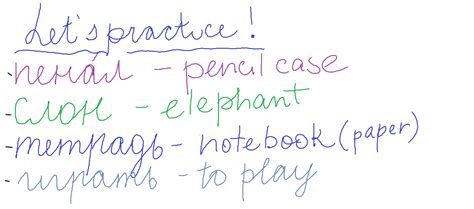 Let's practice!
-пена́л – pencil case
-слон – elephant
-тетрадь – notebook (paper)
-играть – to play